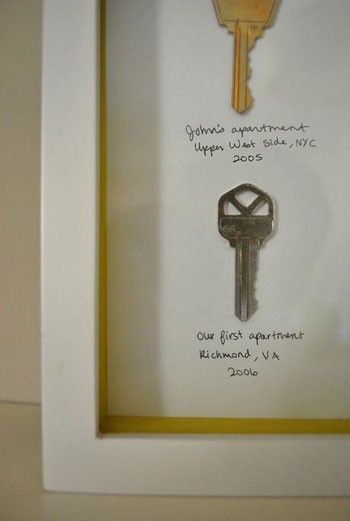 John's apartment
Upper West Side, NYC
2005
Our first apartment
Richmond, VA
2006